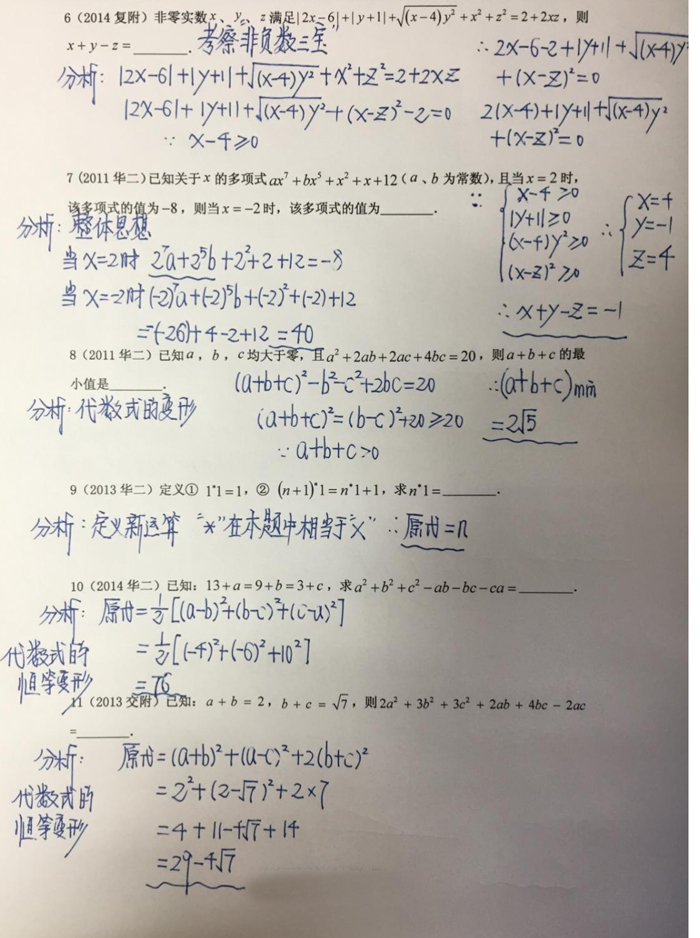 6（2014复附）非零实数x、y、z满足|2x−6|+|y+1|+√((x−4)y²)+x²+z²=2+2xz，则
x+y−z=______. 考察"非负数三宝"
分析: |2x−6|+|y+1|+√((x−4)y²)+x²+z²=2+2xz
|2x−6|+|y+1|+√((x−4)y²)+(x−z)²−2=0
∵ x−4≥0
∴ 2x−6−2+|y+1|+√((x−4)y²)
+(x−z)²=0
2(x−4)+|y+1|+√((x−4)y²)
+(x−z)²=0
∵ { x−4≥0
|y+1|≥0
(x−4)y²≥0
(x−z)²≥0
∴ { x=4
y=−1
z=4
∴ x+y−z=−1
7（2011华二）已知关于x的多项式ax⁷+bx⁵+x²+x+12（a、b为常数），且当x=2时，
该多项式的值为−8，则当x=−2时，该多项式的值为______.
分析: 整体思想
当x=2时 2⁷a+2⁵b+2²+2+12=−8
当x=−2时(−2)⁷a+(−2)⁵b+(−2)²+(−2)+12
=−(−26)+4−2+12=40
8（2011华二）已知a，b，c均大于零，且a²+2ab+2ac+4bc=20，则a+b+c的最
小值是______.
分析: 代数式的变形
(a+b+c)²−b²−c²+2bc=20
(a+b+c)²=(b−c)²+20≥20
∵ a+b+c>0
∴(a+b+c)min
=2√5
9（2013华二）定义① 1*1=1，② (n+1)*1=n*1+1，求n*1=______.
分析: 定义新运算 "*"在本题中相当于"×" ∴原式=n
10（2014华二）已知：13+a=9+b=3+c，求a²+b²+c²−ab−bc−ca=______.
分析: 原式=½[(a−b)²+(b−c)²+(c−a)²]
代数式的
恒等变形
=½[(−4)²+(−6)²+10²]
=76
11（2013交附）已知：a+b=2，b+c=√7，则2a²+3b²+3c²+2ab+4bc−2ac
=______.
分析: 原式=(a+b)²+(a−c)²+2(b+c)²
代数式的
恒等变形
=2²+(2−√7)²+2×7
=4+11−4√7+14
=29−4√7